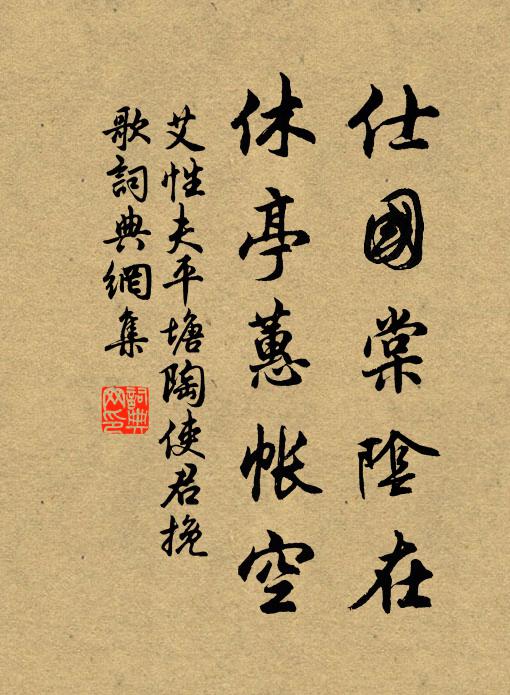 仕國棠陰在
休亭蕙帳空
艾性夫平塘陶使君挽
歌詞典網集
詞典網印